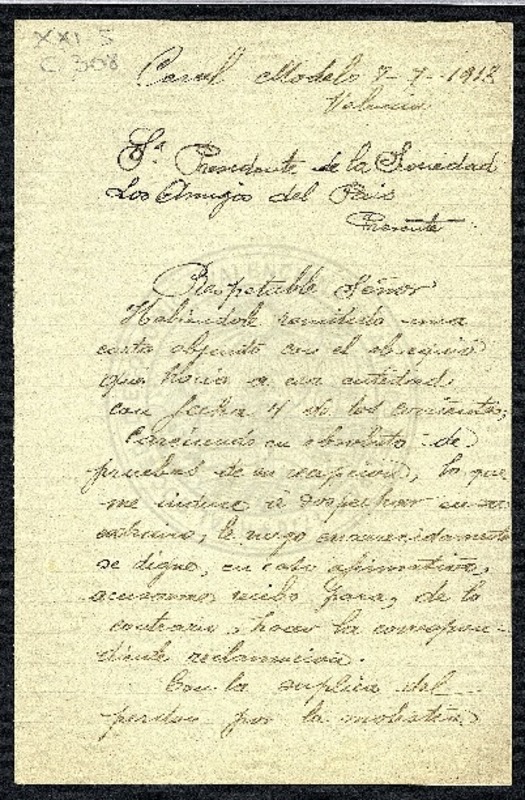 XXI 5
C 308
Carcel Modelo 7-7-1918
Valencia
Sr. Presidente de la Sociedad
Los Amigos del Pais
Presente
Respetable Señor
Habiendole remitido una
carta adjunto con el obsequio
que hacia a esa entidad
con fecha 4 de los corrientes,
careciendo en absoluto de
pruebas de su recepcion, lo que
me induce á sospechar su
extravio, le ruego encarecidamente
se digne, en caso afirmativo,
acusarme recibo para, de lo
contrario, hacer la correspon-
diente reclamacion.
Con la suplica del
perdon por la molestia